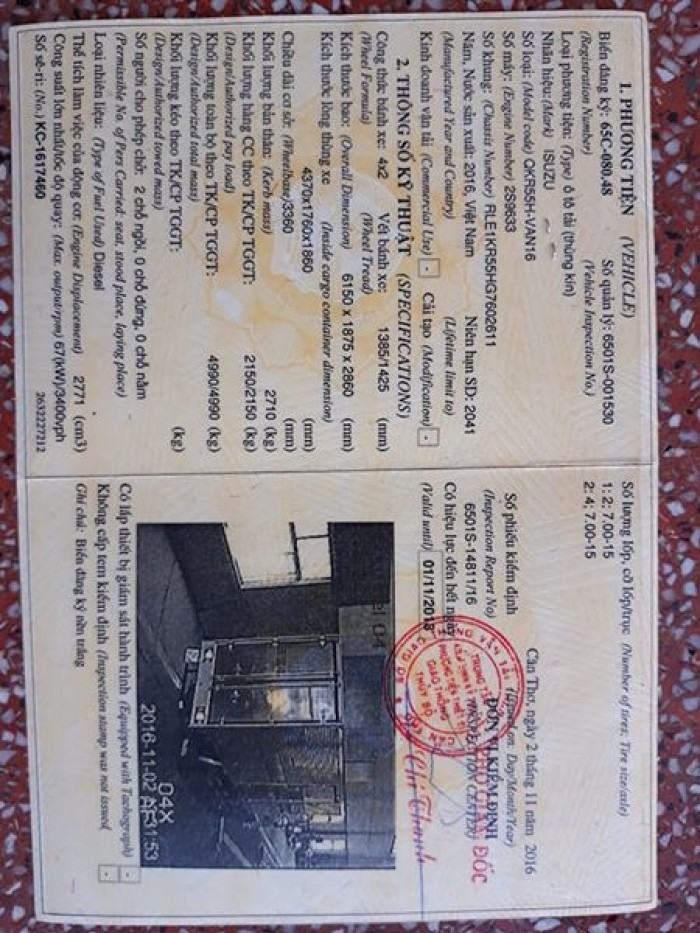 1. PHƯƠNG TIỆN (VEHICLE)
Biển đăng ký: 65C-080.48 Số quản lý: 6501S-001530
(Registration Number) (Vehicle Inspection No.)
Loại phương tiện: (Type) ô tô tải (thùng kín)
Nhãn hiệu: (Mark) ISUZU
Số loại: (Model code) QKR55H-VAN16
Số máy: (Engine Number) 2S9633
Số khung: (Chassis Number) RLE1KR55HG7602611
Năm, Nước sản xuất: 2016, Việt Nam Niên hạn SD: 2041
(Manufactured Year and Country) (Lifetime limit to)
Kinh doanh vận tải (Commercial Use) - Cải tạo (Modification) -
2. THÔNG SỐ KỸ THUẬT (SPECIFICATIONS)
Công thức bánh xe: 4x2 Vết bánh xe: 1385/1425 (mm)
(Wheel Formula) (Wheel Tread)
Kích thước bao: (Overall Dimension) 6150 x 1875 x 2860 (mm)
Kích thước lòng thùng xe (Inside cargo container dimension)
4370x1760x1860 (mm)
Chiều dài cơ sở: (Wheelbase) 3360 (mm)
Khối lượng bản thân: (Kerb mass) 2710 (kg)
Khối lượng hàng CC theo TK/CP TGGT: 2150/2150 (kg)
(Design/Authorized pay load)
Khối lượng toàn bộ theo TK/CP TGGT: 4990/4990 (kg)
(Design/Authorized total mass)
Khối lượng kéo theo TK/CP TGGT: (kg)
(Design/Authorized towed mass)
Số người cho phép chở: 2 chỗ ngồi, 0 chỗ đứng, 0 chỗ nằm
(Permissible No. of Pers Carried: seat, stood place, laying place)
Loại nhiên liệu: (Type of Fuel Used) Diesel
Thể tích làm việc của động cơ: (Engine Displacement) 2771 (cm3)
Công suất lớn nhất/tốc độ quay: (Max. output/rpm) 67(kW)/3400vph
Số sê-ri: (No.) KC-1617460 2632227212
Số lượng lốp, cỡ lốp/trục (Number of tires; Tire size/axle)
1: 2; 7.00-15
2: 4; 7.00-15
Cần Thơ, ngày 2 tháng 11 năm 2016
Day/Month/Year)
Số phiếu kiểm định ĐƠN VỊ KIỂM ĐỊNH
(Inspection Report No) (INSPECTION CENTER)
6501S-14811/16 PHÓ GIÁM ĐỐC
Có hiệu lực đến hết ngày
(Valid until) 01/11/2018
04X
2016-11-02
31:53
Có lắp thiết bị giám sát hành trình (Equipped with Tachograph) -
Không cấp tem kiểm định (Inspection stamp was not issued) -
Ghi chú: Biển đăng ký nền trắng